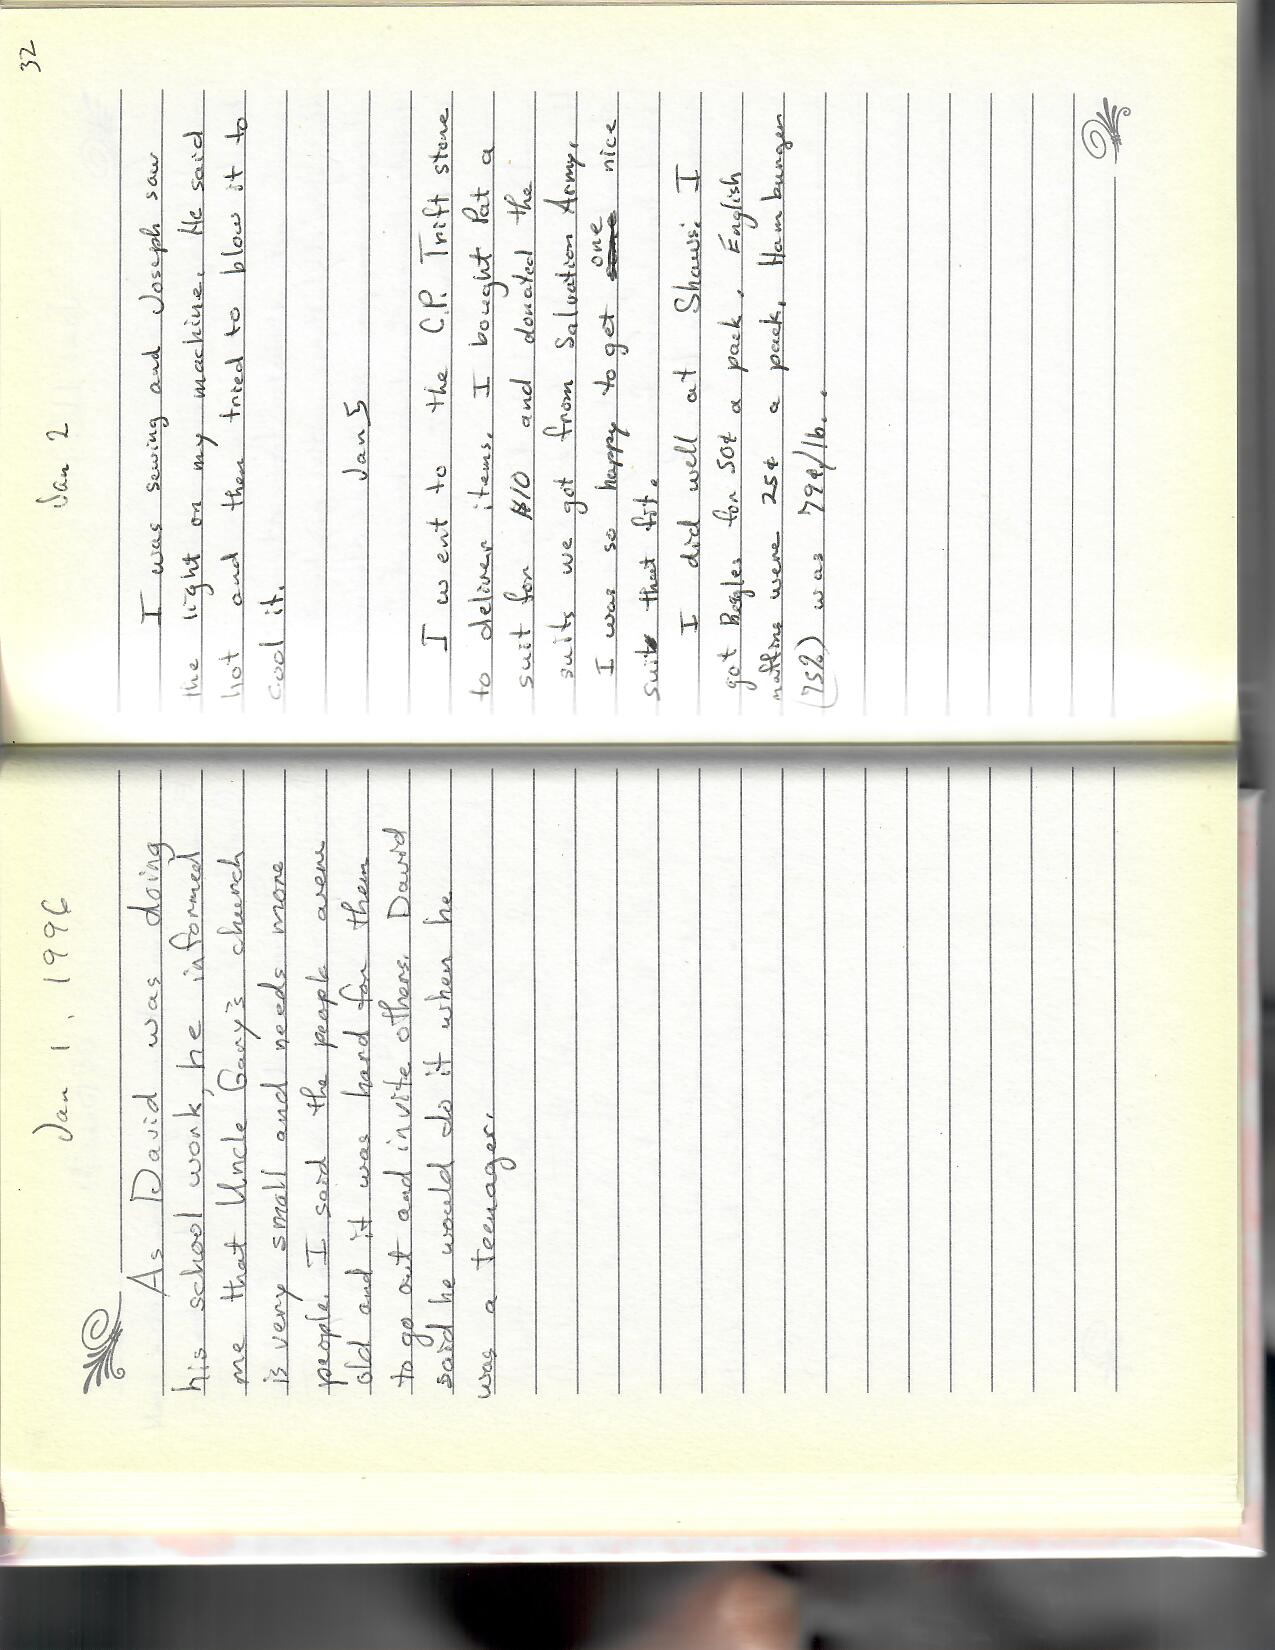 Jan 1, 1996
As David was doing
his school work, he informed
me that Uncle Gary's church
is very small and needs more
people. I said the people were
old and it was hard for them
to go out and invite others. David
said he would do it when he
was a teenager.
32
Jan 2
I was sewing and Joseph saw
the light on my machine. He said
hot and then tried to blow it to
cool it.
Jan 5
I went to the C.P. Trift store
to deliver items. I bought Pat a
suit for $10 and donated the
suits we got from Salvation Army.
I was so happy to get one nice
suit that fit.
I did well at Shaws. I
got Bagles for 50¢ a pack, English
muffins were 25¢ a pack, Hamburger
(75%) was 79¢/lb.